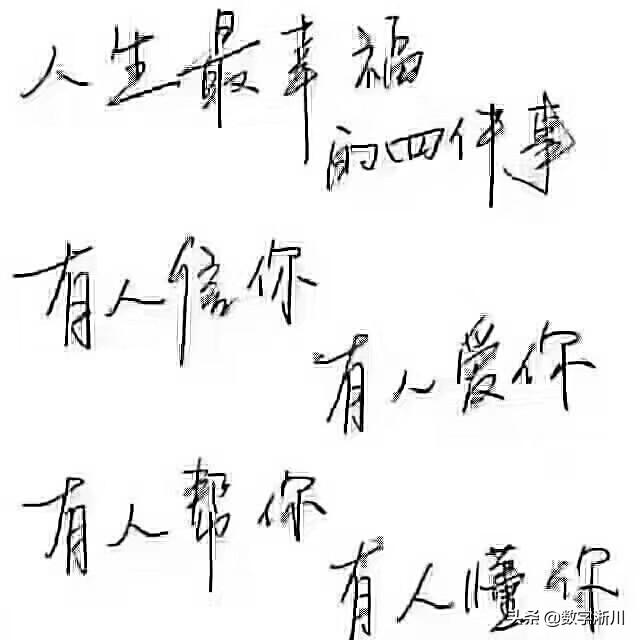 人生最幸福
的四件事
有人信你
有人爱你
有人帮你
有人懂你
头条 @数字淅川